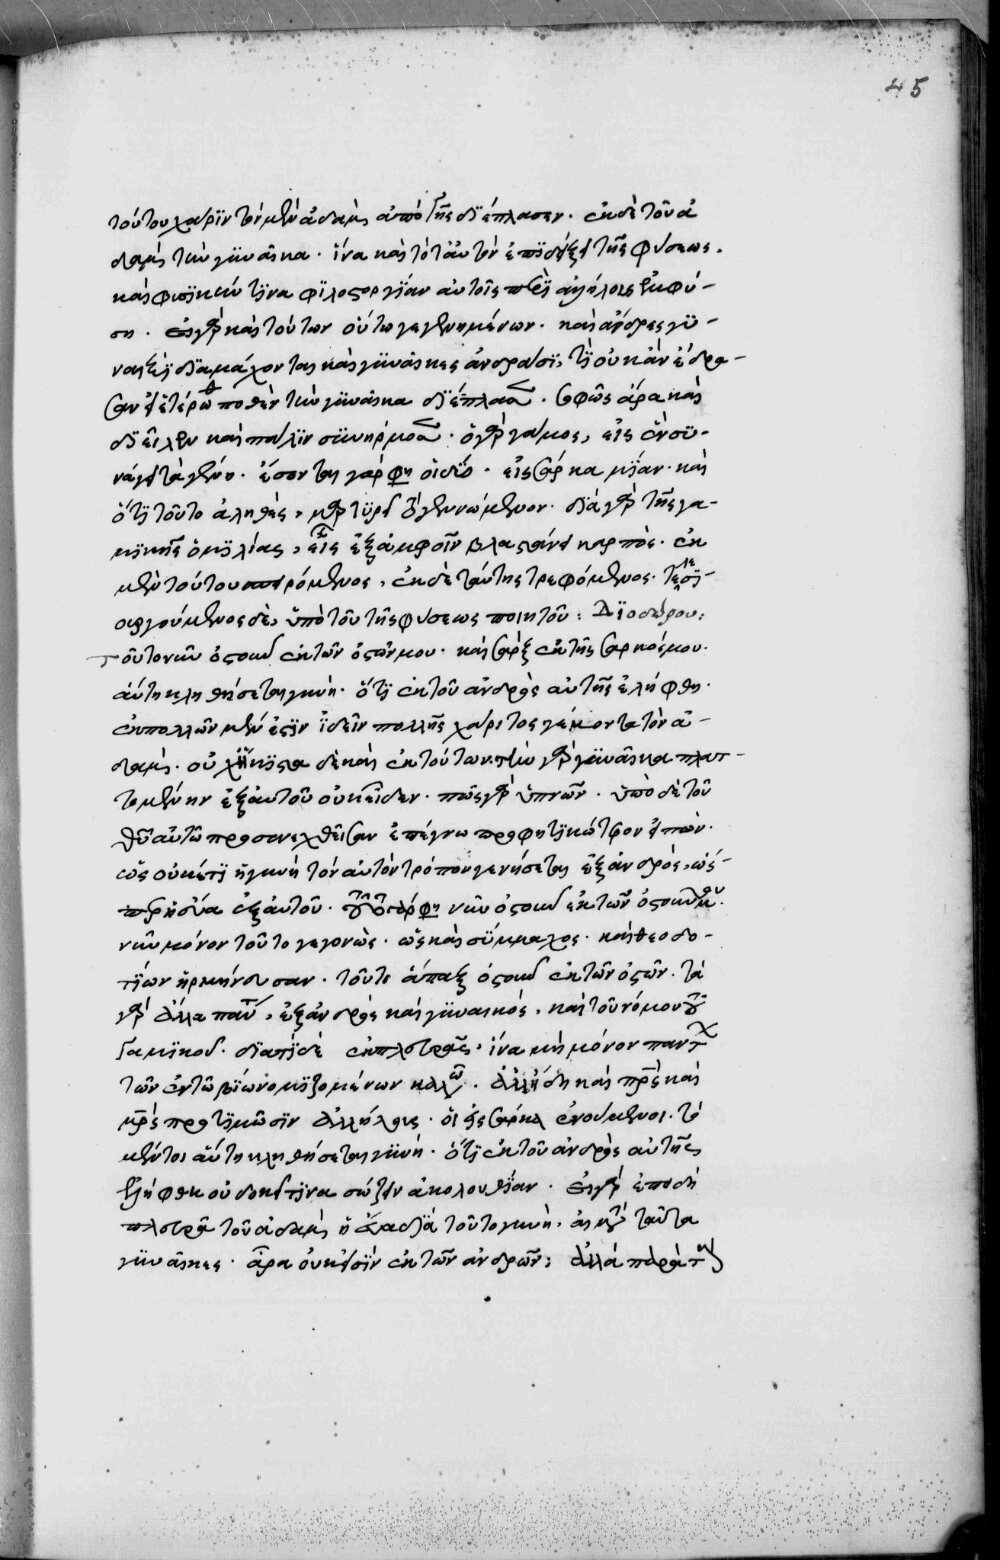 45
τούτου χάριν τὸν μὲν ἀδὰμ ἀπὸ γῆς διέπλασεν. ἐκ δὲ τοῦ ἀ
δαμ τὴν γυναῖκα. ἵνα καὶ τὸ ταυτὸν ἐπιδείξει τῆς φύσεως.
καὶ φυσικήν τινα φιλοστοργίαν αὐτοῖς περὶ ἀλλήλους ἐμφύ-
ση. εἰ γὰρ καὶ τούτων οὕτω γεγενημένων. καὶ ἄνδρες γυ-
ναιξὶ διαμάχονται καὶ γυναῖκες ἀνδράσι, τί οὐκ ἂν ἔδρα-
σαν εἰ ἑτέρωθεν ποθὲν τὴν γυναῖκα διέπλασε. σοφῶς ἄρα καὶ
διεῖλεν καὶ πάλιν συνήρμοσε. ὁ γὰρ γάμος, εἰς ἓν συ-
νάγει τὰ γένη. ἔσονται γάρ φη οἱ δύο. εἰς σάρκα μίαν. καὶ
ὅτι τοῦτο ἀληθὲς, μαρτυρεῖ τὸ γεννώμενον. διὰ γὰρ τῆς γα-
μικῆς ὁμιλίας, εἷς ἐξ ἀμφοῖν βλαστάνει καρπός. ἐκ
μὲν τούτου σπειρόμενος, ἐκ δὲ ταύτης τρεφόμενος. τελεσι-
ουργούμενος δὲ, ὑπὸ τοῦ τῆς φύσεως ποιητοῦ: Διοδώρου:
τοῦτο νῦν ὀστοῦν ἐκ τῶν ὀστῶν μου. καὶ σὰρξ ἐκ τῆς σαρκός μου.
αὕτη κληθήσεται γυνή. ὅτι ἐκ τοῦ ἀνδρὸς αὐτῆς ἐλήφθη.
ἐκ πολλῶν μέν ἐστιν ἰδεῖν πολλῆς χάριτος γέμοντα τὸν ἀ-
δαμ. οὐχ ἥκιστα δὲ καὶ ἐκ τούτων. τὴν γὰρ γυναῖκα πλατ-
τομένην ἐξ αὐτοῦ οὐκ εἶδεν. πῶς γὰρ ὑπνῶν. ὑπὸ δὲ τοῦ
θυ αὐτῷ προσανεχθεῖσαν ἐπέγνω προφητικώτερον εἰπών.
ὡς οὐκέτι ἡ γυνὴ τὸν αὐτὸν τρόπον γενήσεται ἐξ ἀνδρὸς, ὡς
ἐξ αὐτοῦ. τοῦτο γάρ φη νῦν ὀστοῦν ἐκ τῶν ὀστῶν μου.
νῦν μόνον τοῦτο γεγονὼς. ὡς καὶ σύμμαχος. καὶ θεοδο-
τίων ἡρμήνευσαν. τοῦτο ἅπαξ ὀστοῦν ἐκ τῶν ὀστῶν. τὰ
γὰρ ἄλλα πάντα, ἐξ ἀνδρὸς καὶ γυναικός, καὶ τοῦ νόμου τοῦ
γαμικοῦ. διατί δὲ ἐκ πλευρᾶς, ἵνα μὴ μόνον παντ
τῶν ἐν τῷ βίῳ νομιζομένων καλῶν. ἀλλ' ἤδη καὶ πρς καὶ
μρς προτιμῶσιν ἀλλήλους. οἱ εἰς σάρκα ἑνούμενοι. τὸ
μέντοι αὕτη κληθήσεται γυνή. ὅτι ἐκ τοῦ ἀνδρὸς αὐτῆς
ἐλήφθη οὐ δοκεῖ τινα σώζειν ἀκολουθίαν. εἰ γὰρ ἐπειδὴ
πλευρᾶ τοῦ ἀδὰμ ἡ εὔα διὰ τοῦτο γυνὴ, αἱ μετὰ ταῦτα
γυναῖκες. ἄρα οὐκ εἰσὶν ἐκ τῶν ἀνδρῶν; ἀλλὰ παρὰ τ